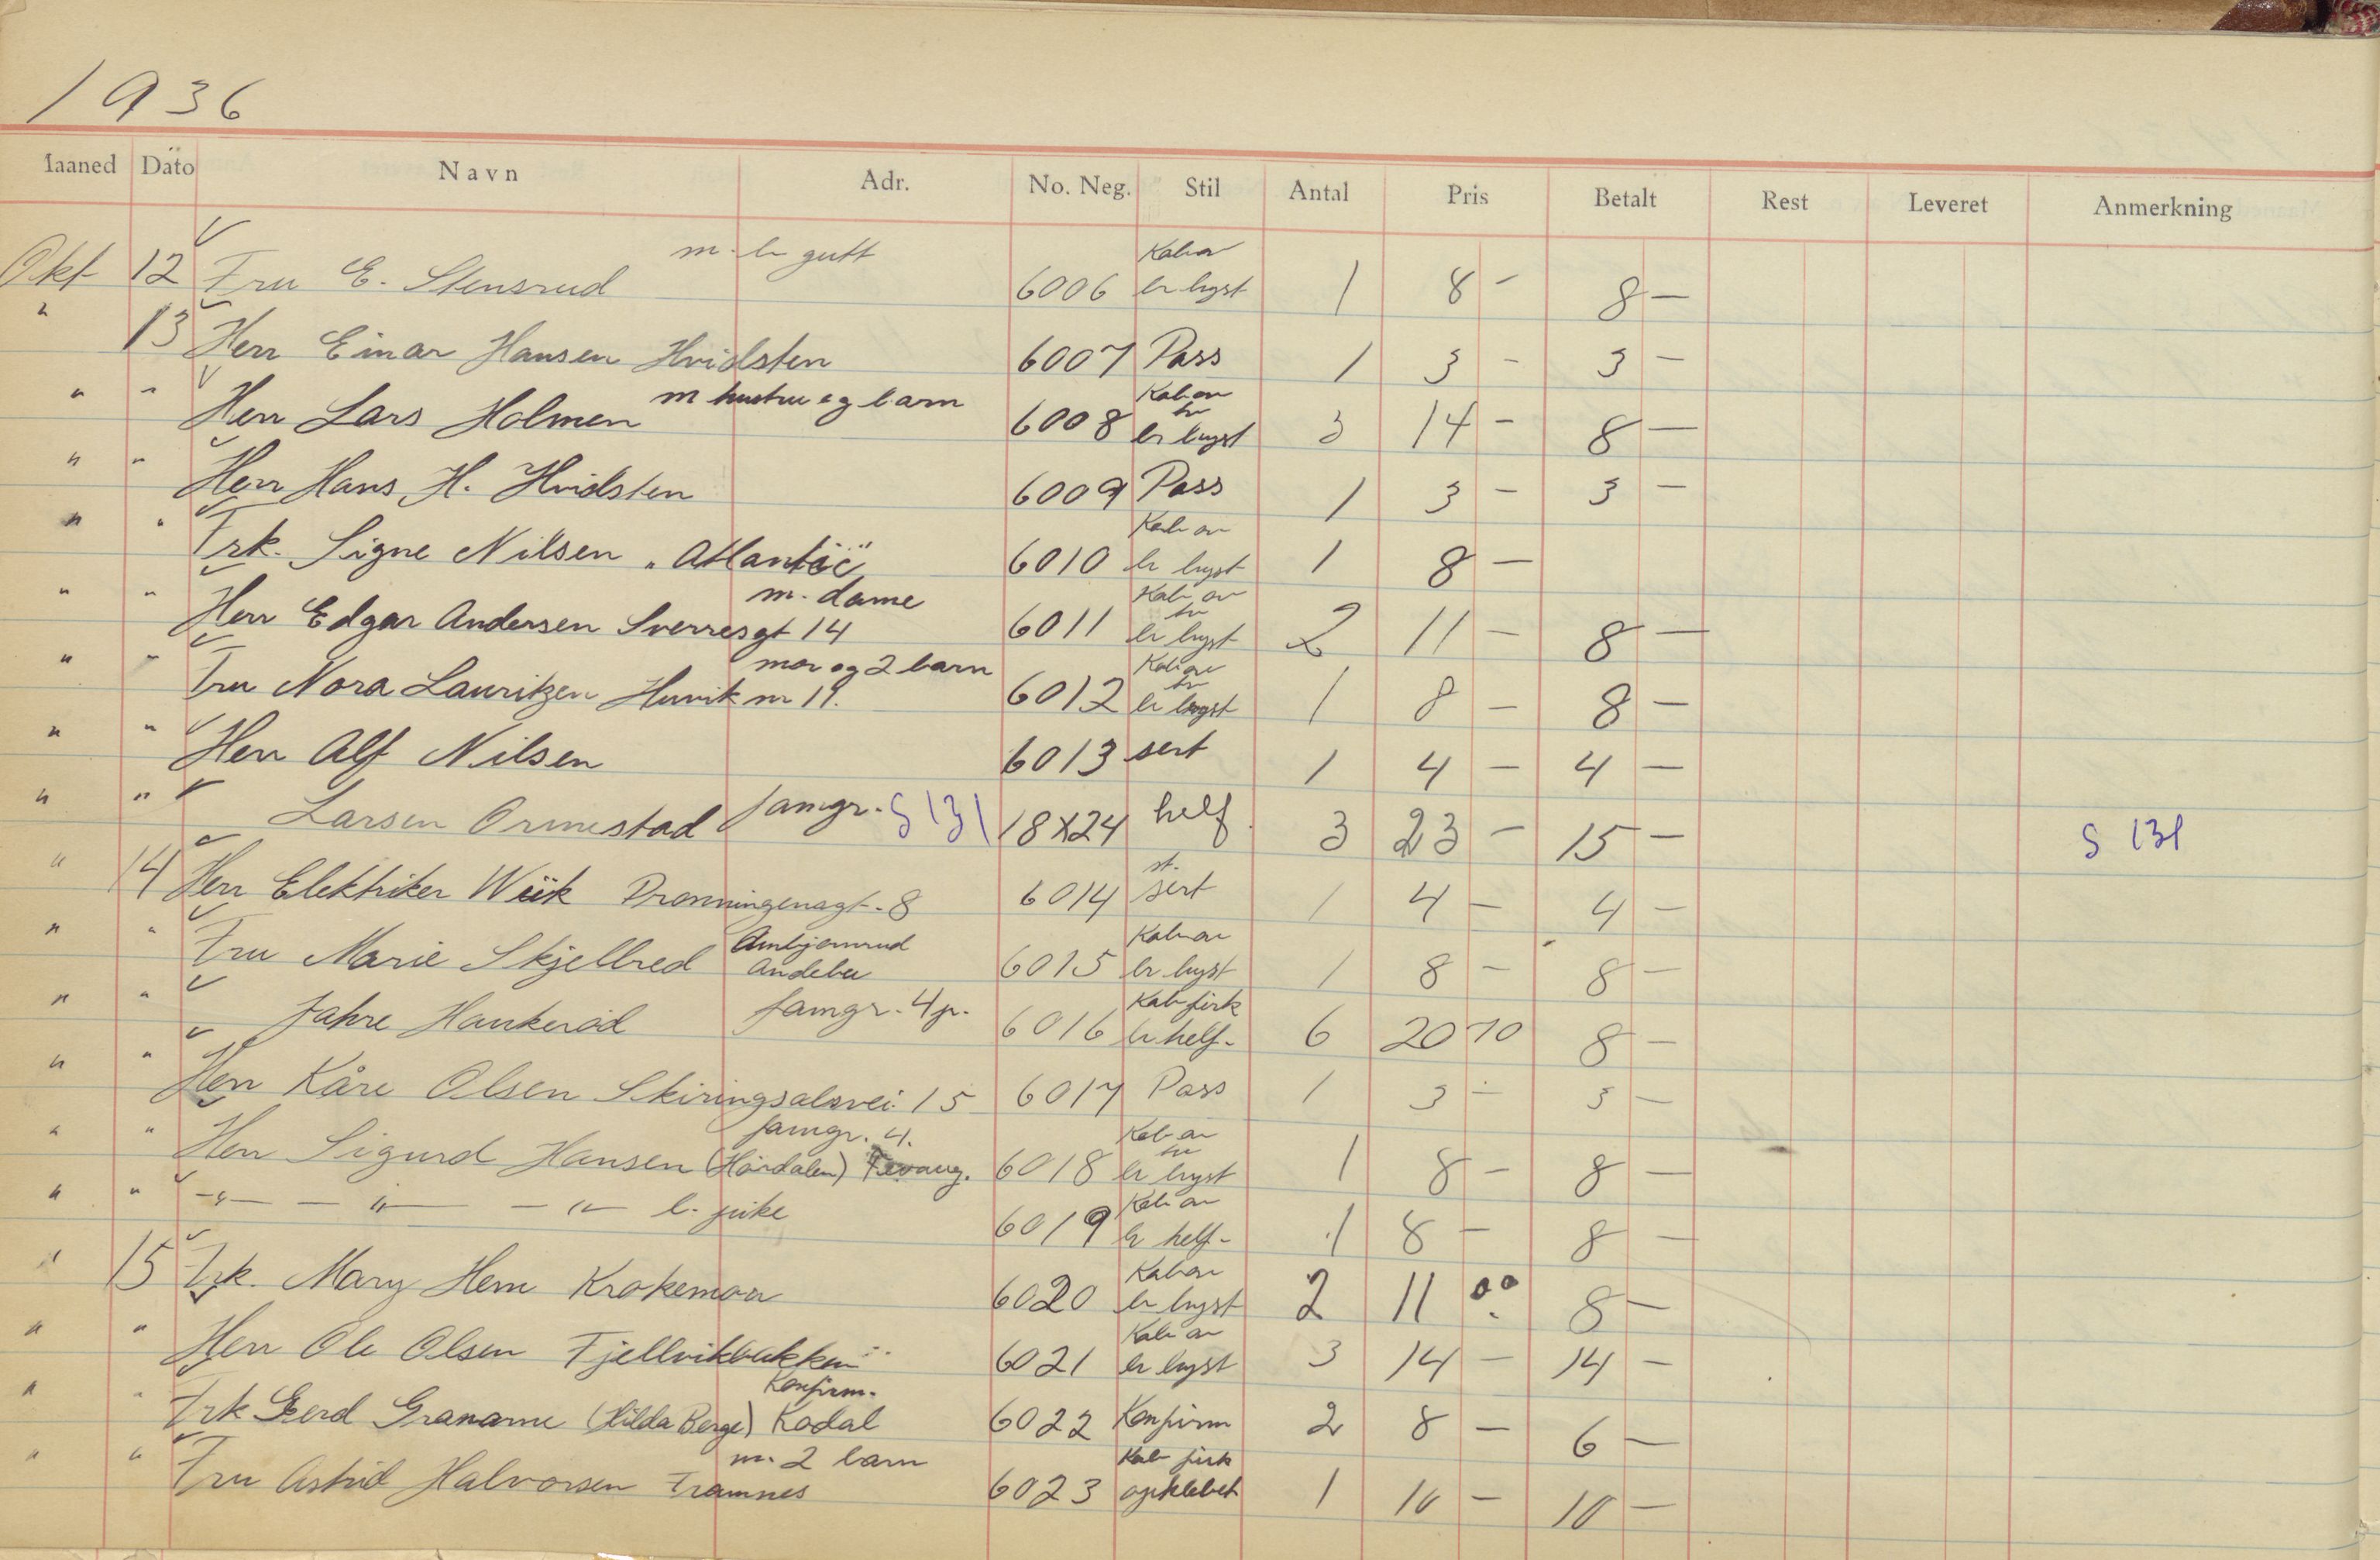 1936
Maaned Dato Navn Adr. No. Neg. Stil Antal Pris Betalt Rest Leveret Anmerkning
m. br gutt Kab av
Okt 12 Fru E. Stensrud 6006 br lyst 1 8 - 8 -
" 13 Herr Einar Hansen Hvidsten 6007 Pass 1 3 - 3 -
m hustru og barn Kab av
" " Herr Lars Holmen 6008 br lyst 3 14 - 8 -
" " Herr Hans H. Hvidsten 6009 Pass 1 3 - 3 -
Kab av
" " Frk. Signe Nilsen "Atlantic" 6010 br lyst 1 8 -
m. dame Kab av
" " Herr Edgar Andersen Sverresgt 14 6011 br lyst 2 11 - 8 -
mor og 2 barn Kab av
" " Fru Nora Lauritzen Huvik nr 19. 6012 br lyst 1 8 - 8 -
" " Herr Alf Nilsen 6013 sert 1 4 - 4 -
" " Larsen Ormestad famgr. S 131 18X24 helf. 3 23 - 15 - S 131
st.
" 14 Herr Elektriker Wiik Dronningensgt. 8 6014 sert 1 4 - 4 -
Kab av
" " Fru Marie Skjellred Andebu 6015 br lyst 1 8 - 8 -
famgr. 4 p. Kab firk
" " Jahre Haukerød 6016 br helf. 6 20 70 8 -
" " Herr Kåre Olsen Skiringsalsvei 15 6017 Pass 1 3 - 3 -
famgr. 4. Kab av
" " Herr Sigurd Hansen (Hårdalen) Tevang. 6018 br lyst 1 8 - 8 -
Kab av
" " -"- - "- - "- l. pike 6019 br helf. 1 8 - 8 -
Kab av
" 15 Frk. Mary Hem Krokemoa 6020 br lyst 2 11 00 8 -
Kab av
" " Herr Ole Olsen Fjellvikbakken 6021 br lyst 3 14 - 14 -
Konfirm.
" " Frk Gerd Granarne (Hilda Berge) Kodal 6022 Konfirm 2 8 - 6 -
m. 2 barn Kab firk
" " Fru Astrid Halvorsen Framnes 6023 opklebet 1 10 - 10 -